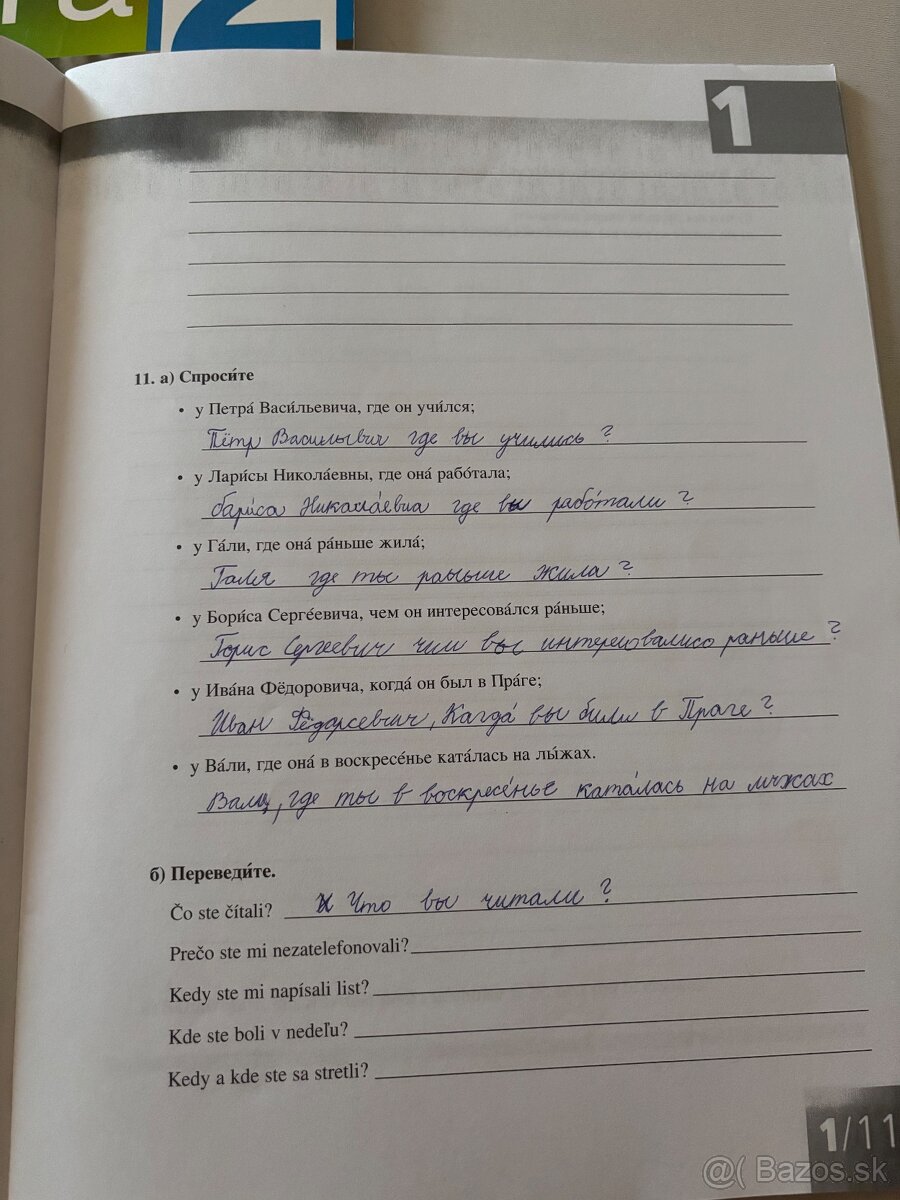 ra 2
1
11. а) Спроси́те
• у Петра́ Васи́льевича, где он учи́лся;
Пётр Василывич где вы учились ?
• у Лари́сы Никола́евны, где она́ рабо́тала;
бари́са Никала́евиа где вы рабо́тали ?
• у Га́ли, где она́ ра́ньше жила́;
Галя где ты раньше жила ?
• у Бори́са Серге́евича, чем он интересова́лся ра́ньше;
Борис Сергеевич чем вы интересовалисо раньше ?
• у Ива́на Фёдоровича, когда́ он был в Пра́ге;
Иван Фёдарсевич, Кагда́ вы били в Праге ?
• у Ва́ли, где она́ в воскресе́нье ката́лась на лы́жах.
где ты в воскресе́нье ката́лась на лыжах
б) Переведи́те.
Čo ste čítali? Что вы читали ?
Prečo ste mi nezatelefonovali?
Kedy ste mi napísali list?
Kde ste boli v nedeľu?
Kedy a kde ste sa stretli?
1/11
@( Bazos.sk